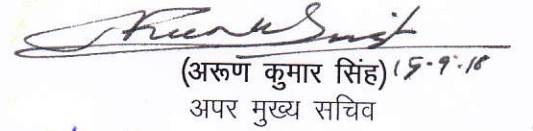 (अरूण कुमार सिंह) 15-9-18
अपर मुख्य सचिव